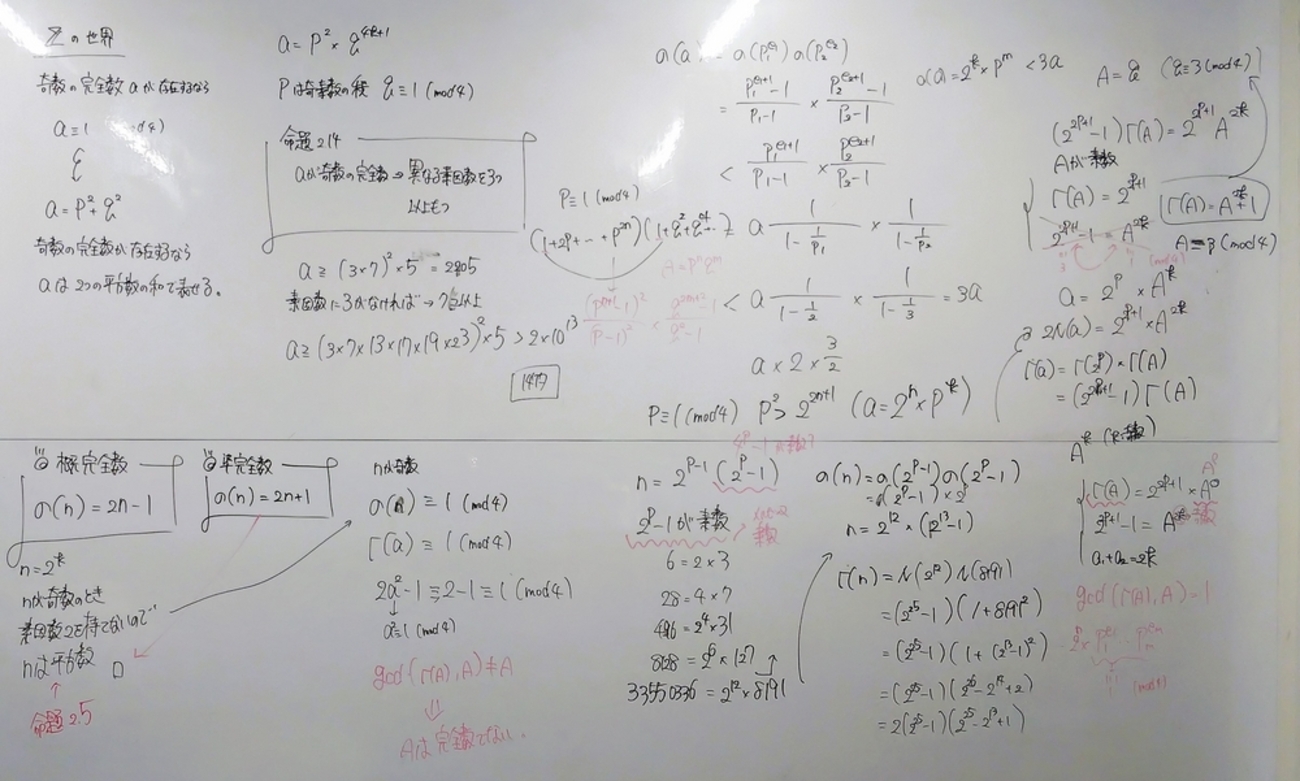 Zの世界
奇数の完全数aが存在するなら
a≡1 mod4)
a=p²+q²
奇数の完全数が存在するなら
aは2つの平方数の和で表せる。
a=p²×q^{4k+1}
Pは奇素数の積 q≡1 (mod4)
命題2.14
aが奇数の完全数→異なる素因数を3つ
以上もつ
a≥(3×7)²×5=2205
素因数に3がなければ→7以上
a≥(3×7×13×17×19×23)²×5>2×10^{13}
P≡1 (mod4)
A=p^n q^m
σ(a)=σ(p₁^{e₁})σ(p₂^{e₂})
=\frac{p₁^{e₁+1}-1}{p₁-1}×\frac{p₂^{e₂+1}-1}{p₂-1}
<\frac{p₁^{e₁+1}}{p₁-1}×\frac{p₂^{e₂+1}}{p₂-1}
a\frac{1}{1-\frac{1}{p₁}}×\frac{1}{1-\frac{1}{p₂}}
<a\frac{1}{1-\frac{1}{2}}×\frac{1}{1-\frac{1}{3}}=3a
a×2×\frac{3}{2}
P≡1(mod4) p²>2^{2n+1} (a=2^n×p^k)
σ(a)=2^k×p^m<3a
A=q (q≡3(mod4))
(2^{2p+1}-1)Γ(A)=2^{2p+1}A^{2k}
Aが素数
Γ(A)=2^{2p+1}
2^{2p+1}-1=A^{2k}
Γ(A)=A^{2k}+1
A≡3(mod4)
a=2^p×A^k
2N(a)=2^{2p+1}×A^{2k}
Γ(a)=Γ(2^p)×Γ(A)
=(2^{2p+1}-1)Γ(A)
概完全数
σ(n)=2n-1
n=2^k
nが奇数のとき
素因数2を持てないので
nは平方数 □
命題2.5
準完全数
σ(n)=2n+1
nが奇数
≡1 (mod4)
Γ(a)≡1 (mod4)
2a²-1≡2-1≡1 (mod4)
a²≡1 (mod4)
gcd(Γ(A),A)≠A
⇓
Aは完全数でない.
n=2^{p-1}(2^p-1)
2^p-1が素数
6=2×3
28=4×7
496=2^4×31
8128=2^6×127
33550336=2^{12}×8191
σ(n)=σ(2^{p-1})σ(2^p-1)
=(2^p-1)×2^p
n=2^{12}×(2^{13}-1)
Γ(n)=N(2^{12})N(8191)
=(2^{25}-1)(1+8191²)
=(2^{25}-1)(1+(2^{13}-1)²)
=(2^{25}-1)(2^{26}-2^{14}+2)
=2(2^{25}-1)(2^{25}-2^{13}+1)
2^{2p+1}-1=A
a₁+a₂=2k
gcd(Γ(A),A)=1